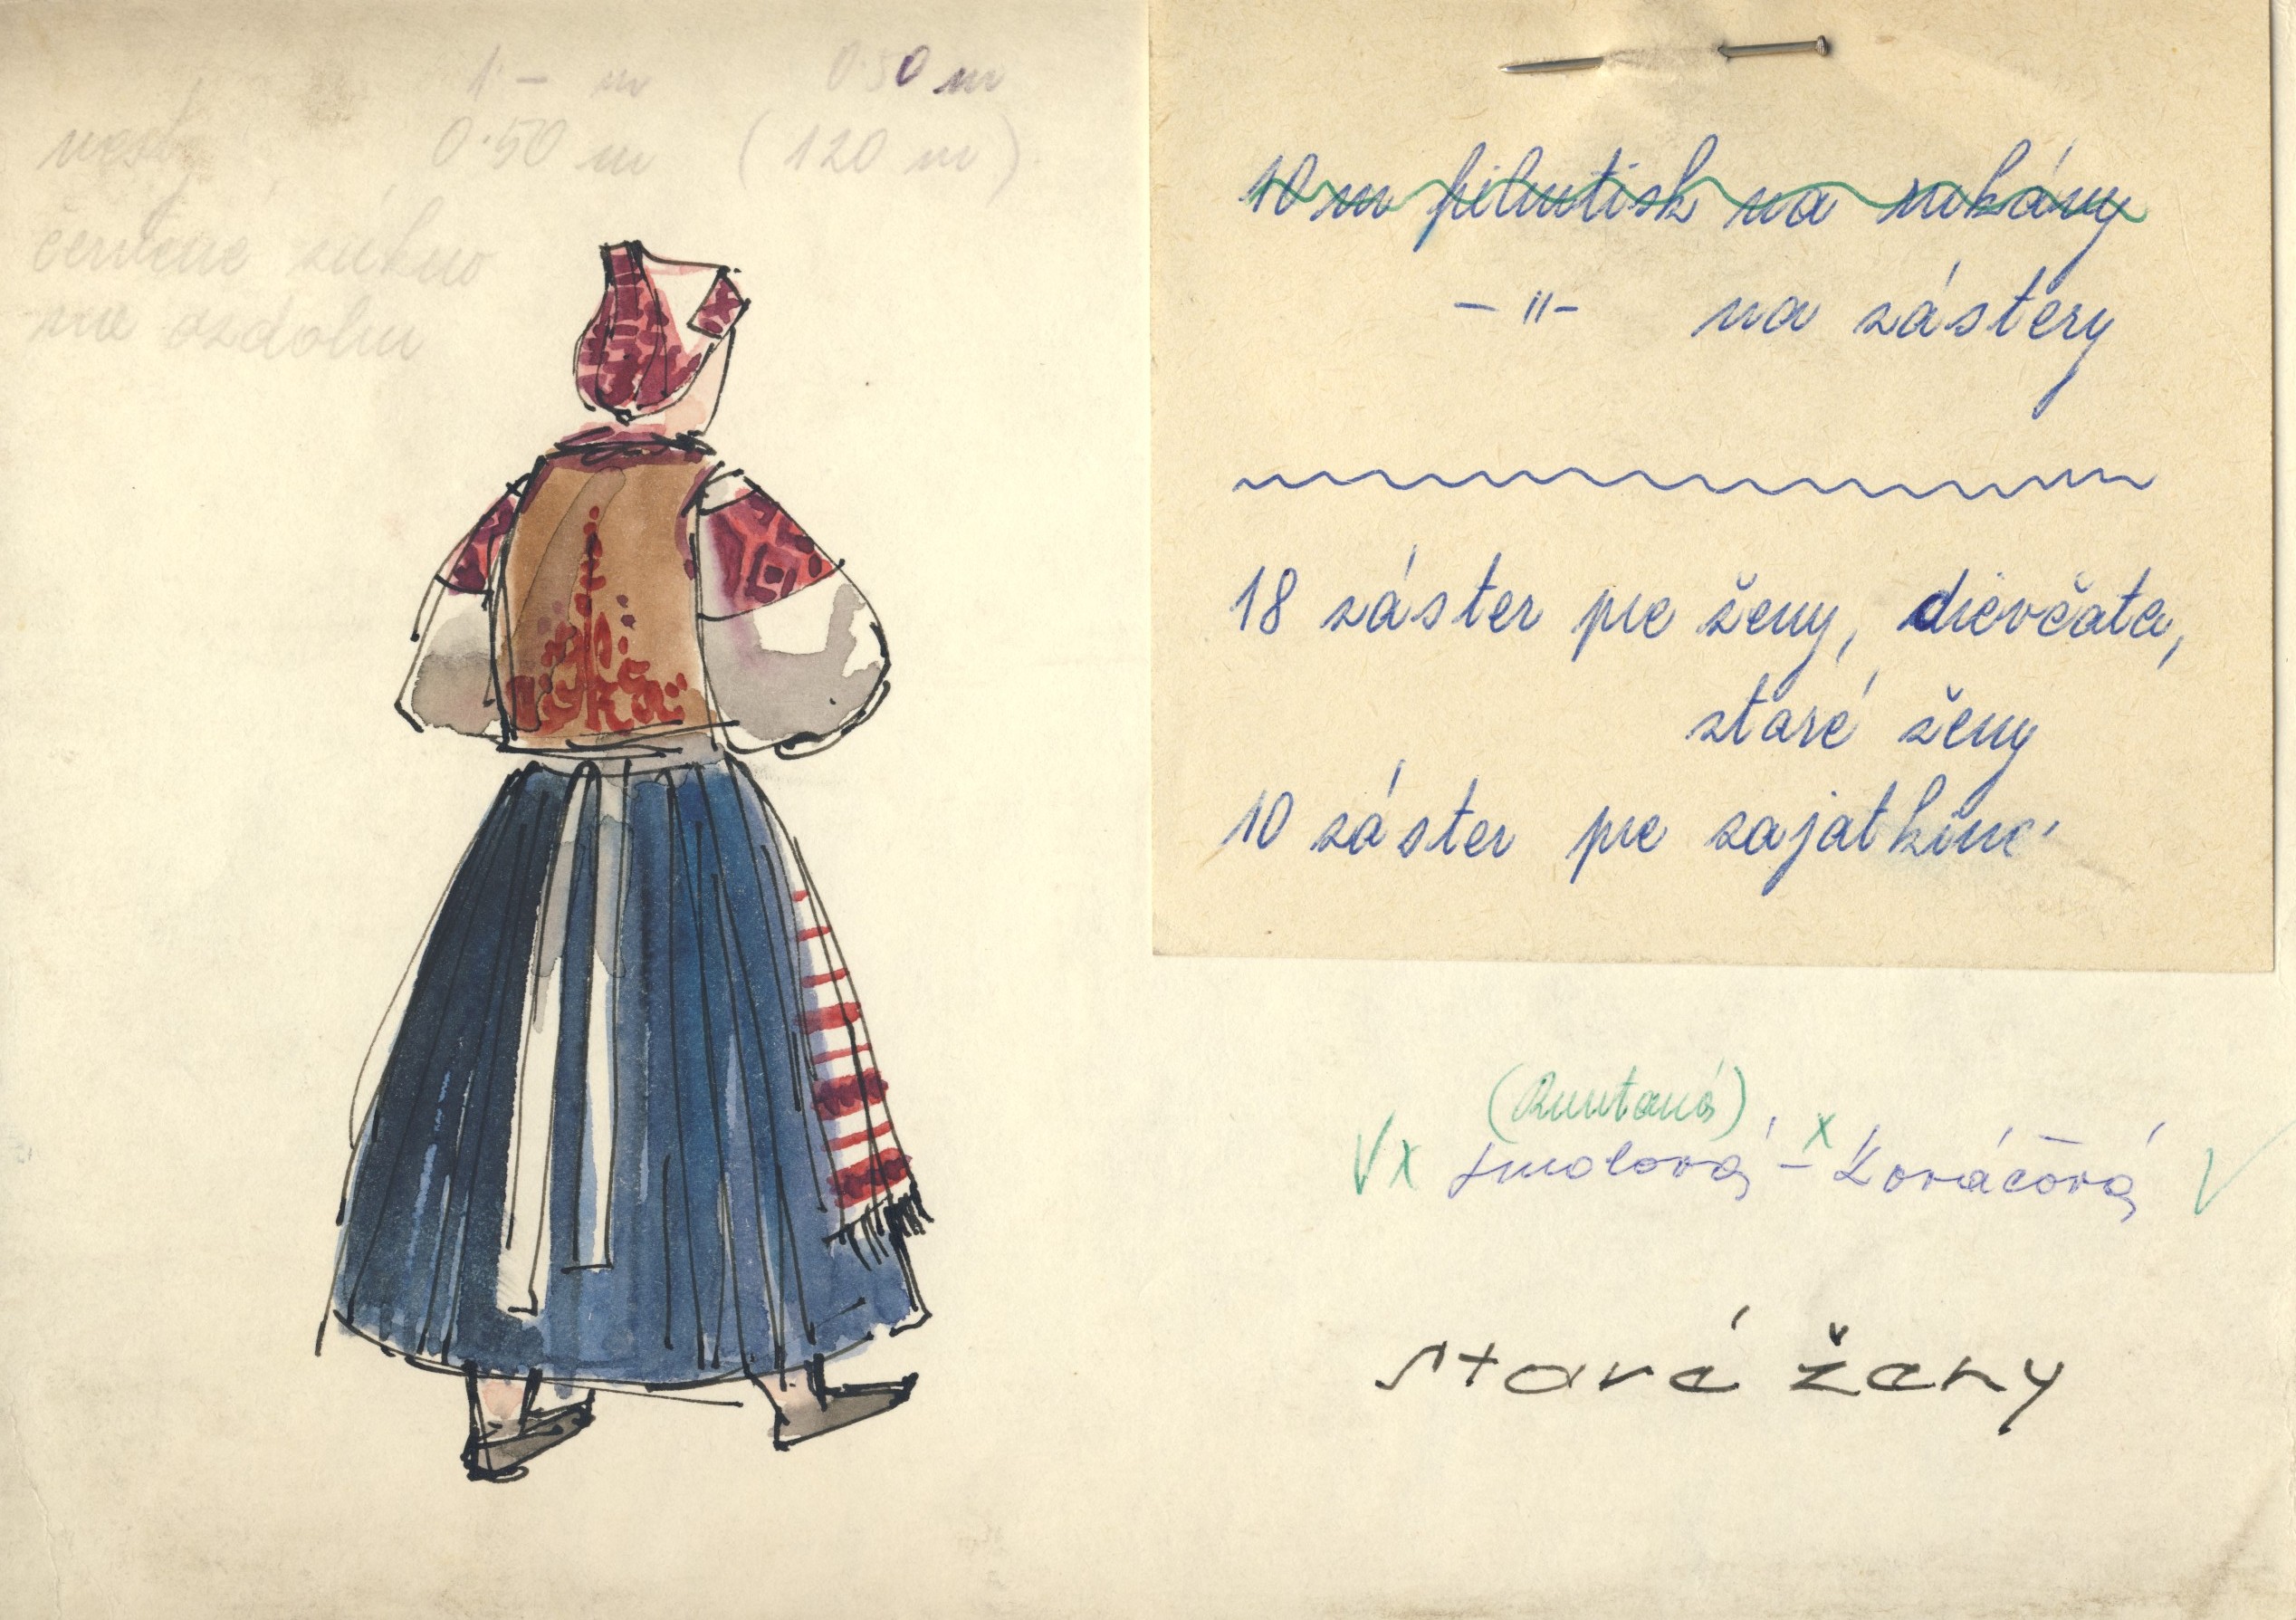 1·– m 0·50 m
vesty 0·50 m (120 m)
červené súkno
na ozdobu
10 m filmtisk na rukávy
– " – na zástery
18 záster pre ženy, dievčatá,
staré ženy
10 záster pre zajatkine
Smolová – x Kováčová
staré ženy